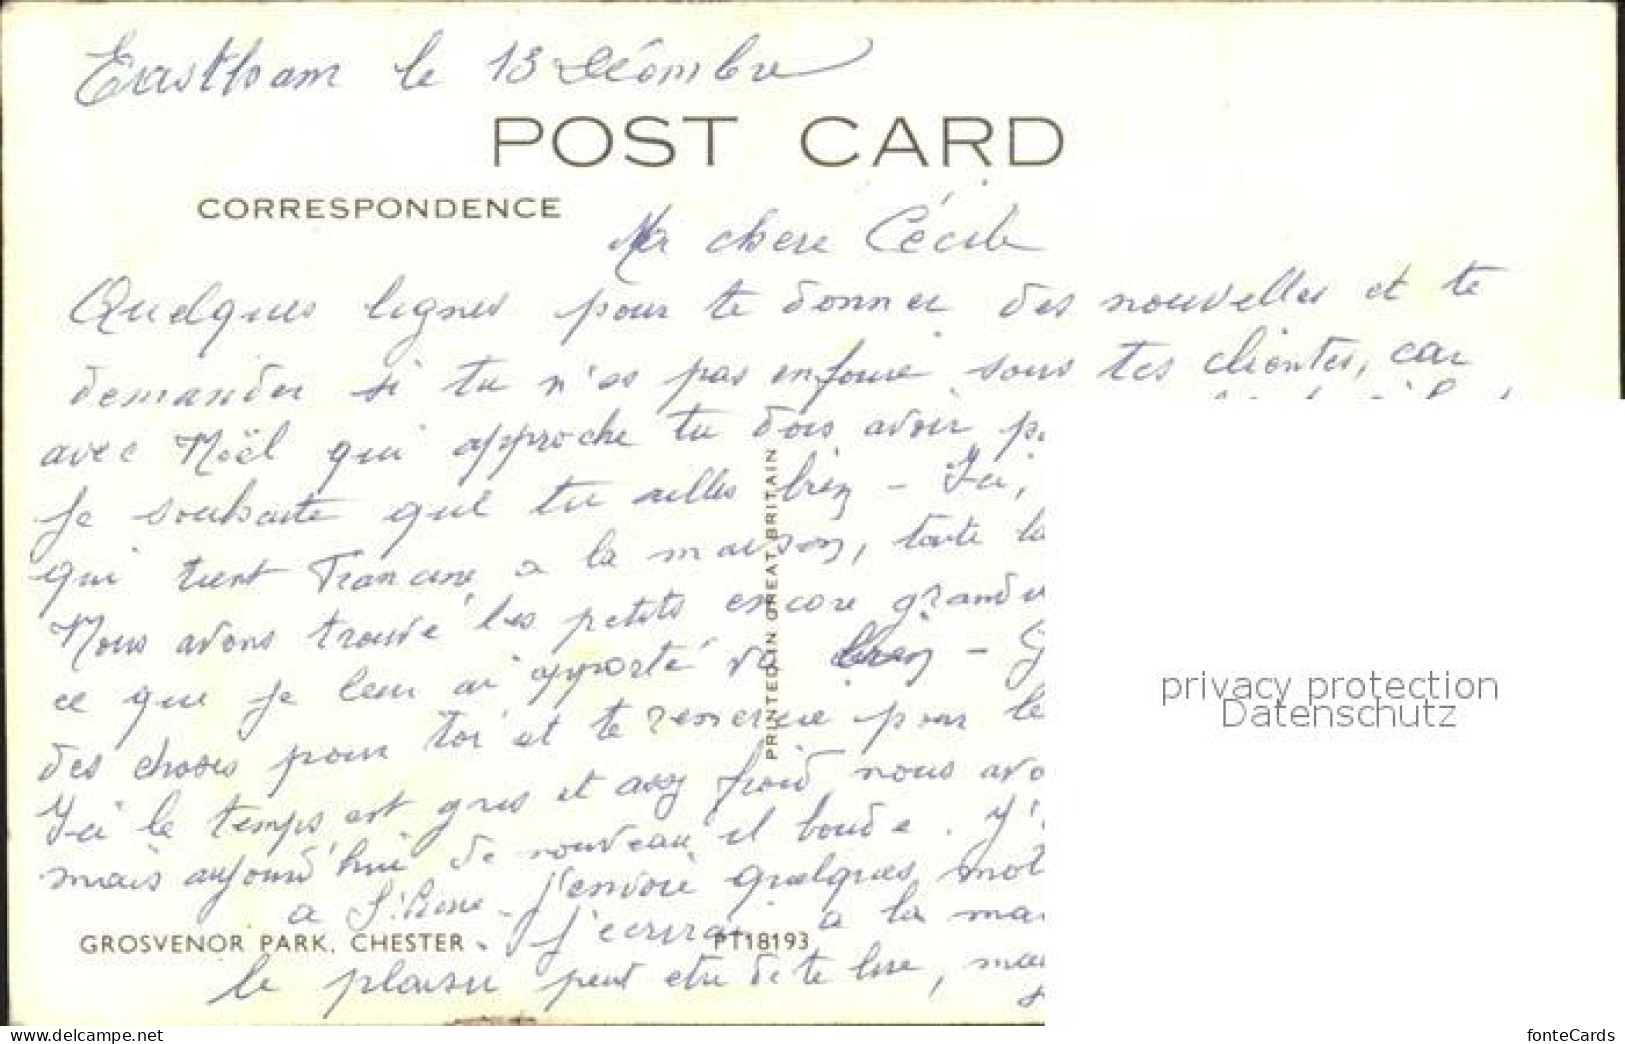 Eastham le 13 Décembre
POST CARD
CORRESPONDENCE
Ma chere Cécile
Quelques lignes pour te donner des nouvelles et te
demander si tu n'es pas enfouie sous tes clientes, car
avec Noël qui approche tu dois avoir
Je souhaite que tu ailles bien - Ici,
qui tient Francine à la maison, toute la
Nous avons trouvé les petits encore grandis
ce que je leur ai apporté va bien -
des choses pour toi et te remercie pour le
Ici le temps est gris et assez froid nous
mais aujourd'hui de nouveau il boude. J'
a - J'envoie quelques mot
J'ecrirai a la
le plaisir peut etre de te lire,
PRINTED IN GREAT BRITAIN
GROSVENOR PARK, CHESTER
PT18193
privacy protection
Datenschutz
www.delcampe.net
fonteCards